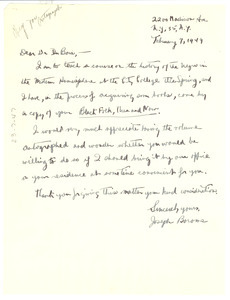 2200 Madison Ave
N.Y. 35, N.Y.
February 7, 1949
Dear Dr. Du Bois,—
I am to teach a course on the history of the Negro in the
Western Hemisphere at the City College this Spring, and
I have, in the process of acquiring some books, come by
a copy of your Black Folk, Then and Now.
I would very much appreciate having the volume
autographed and wonder whether you would be
willing to do so if I should bring it by your office
or your residence at sometime convenient for you.
Thank you for giving this matter your kind consideration.
Sincerely yours,
Joseph